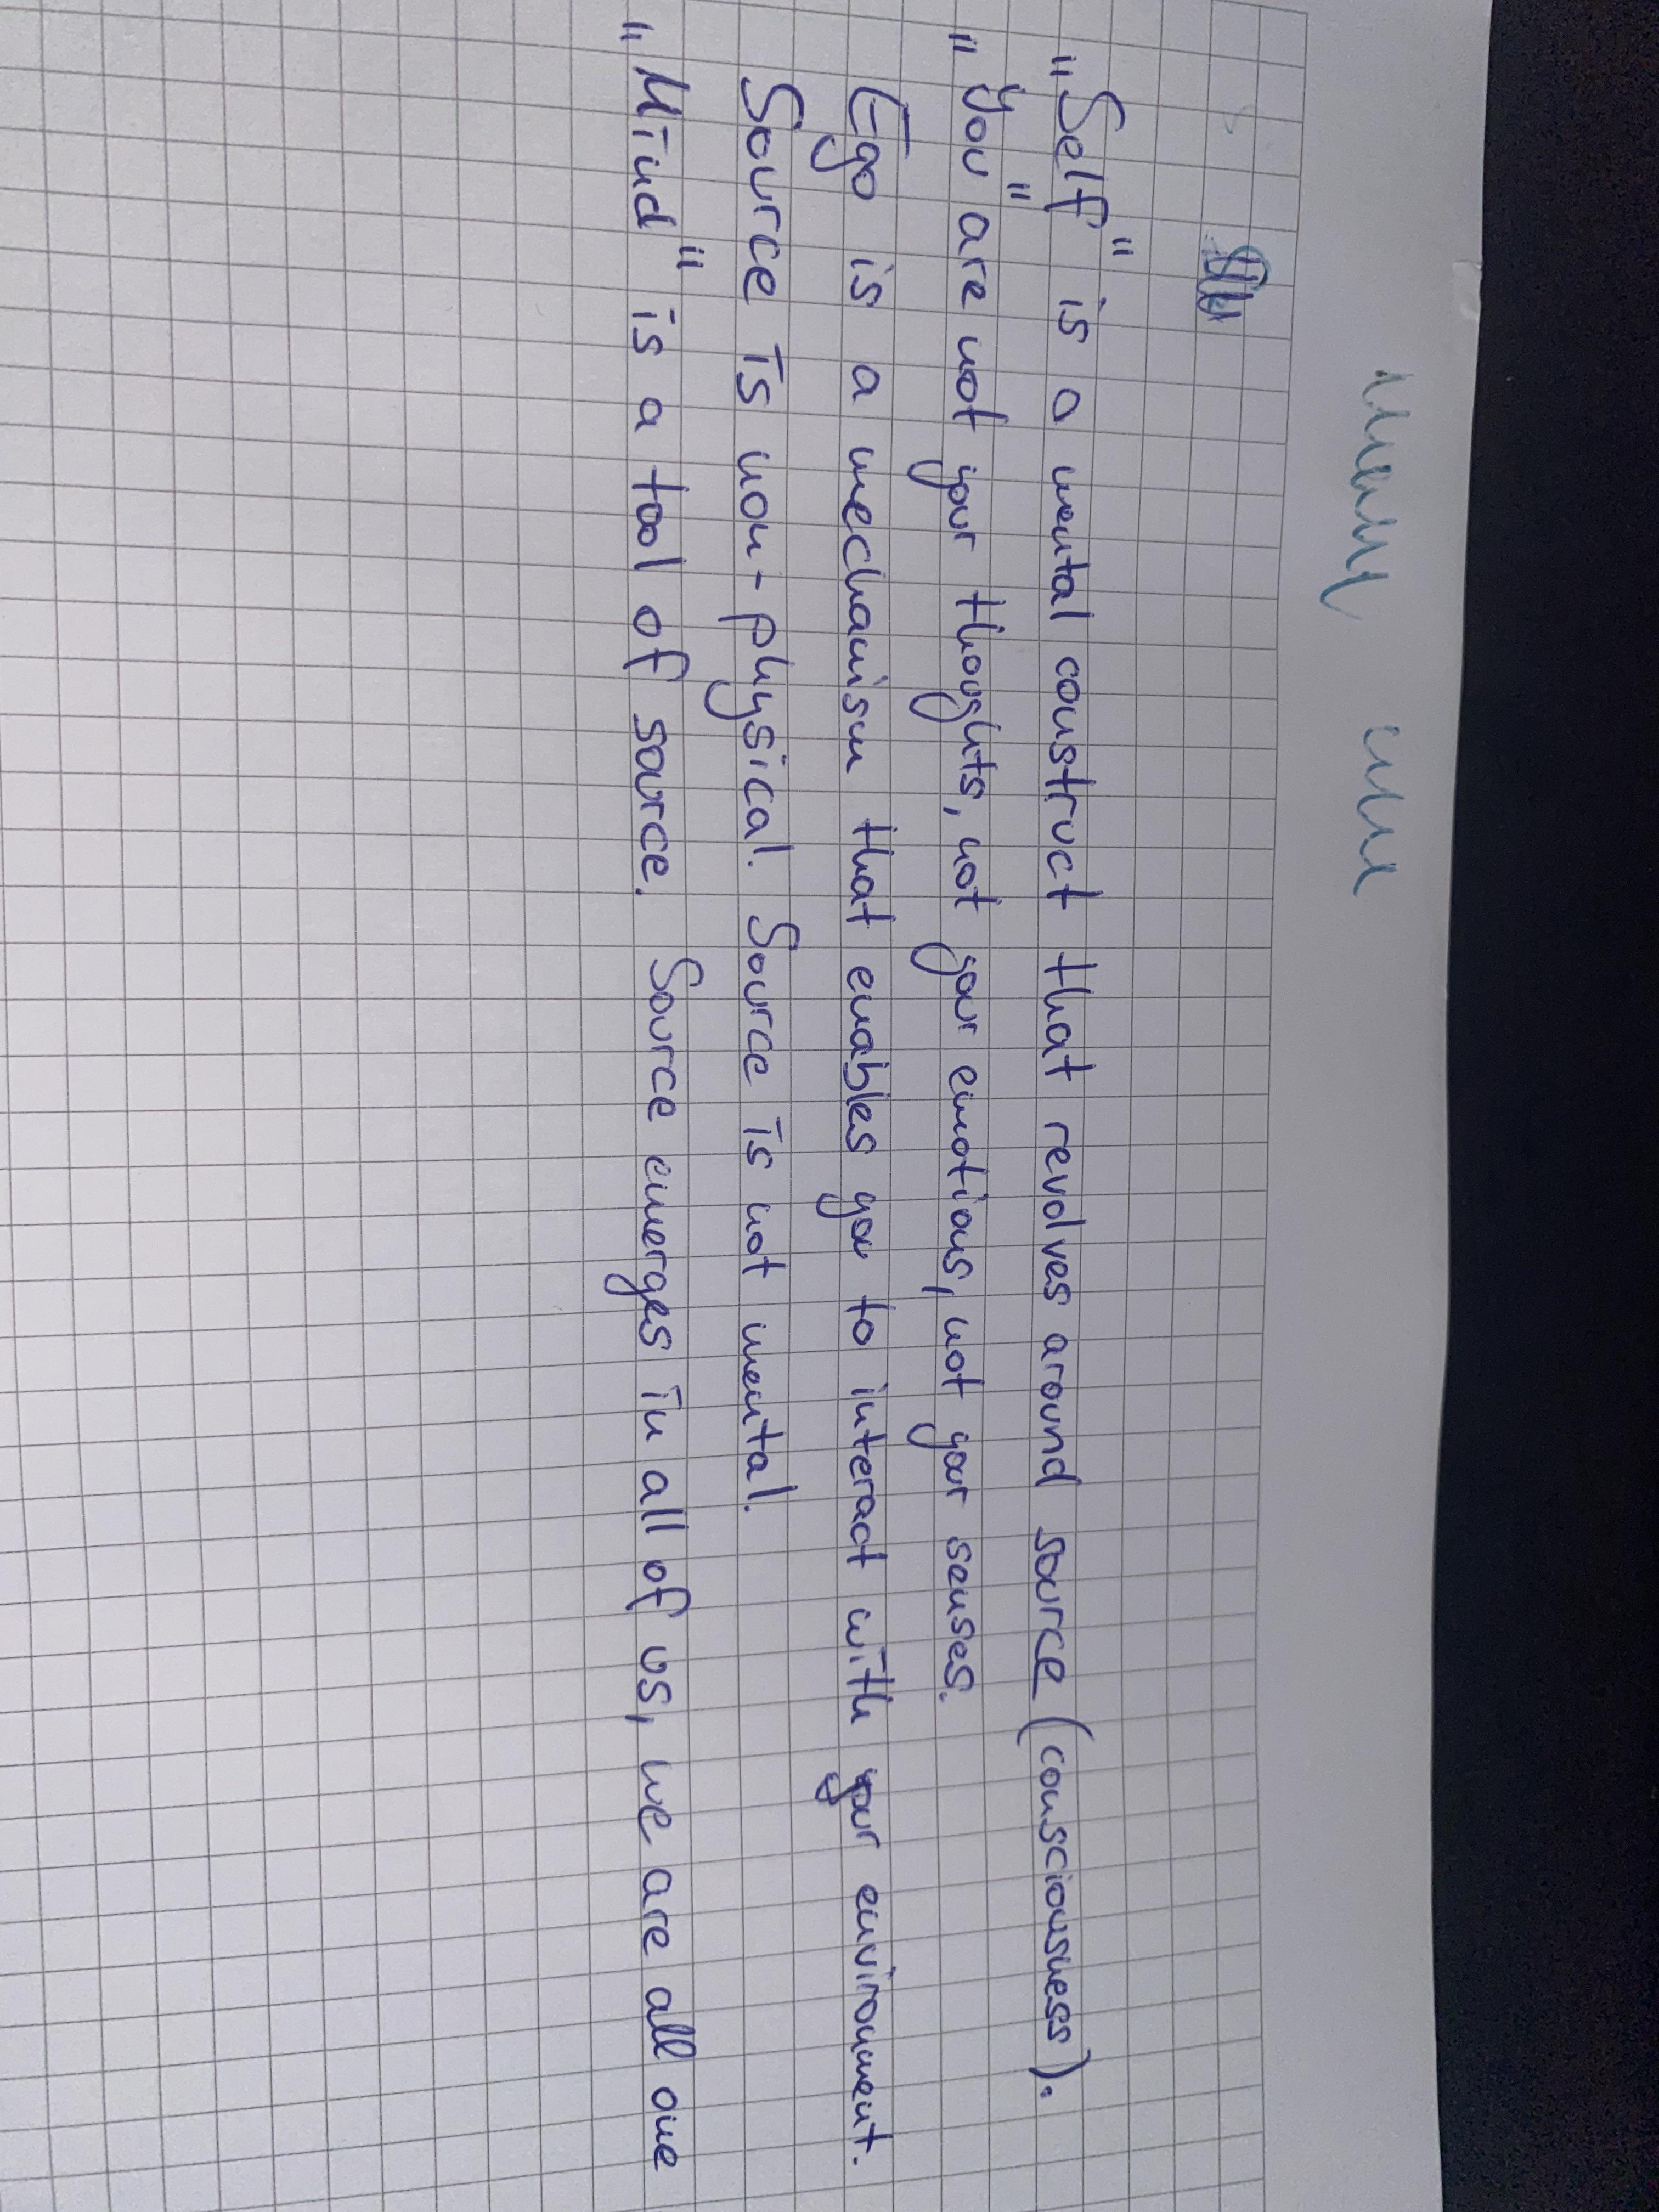 „Self" is a mental construct that revolves around source (consciousness).
„You" are not your thoughts, not your emotions, not your senses.
Ego is a mechanism that enables you to interact with your environment.
Source is non-physical. Source is not mental.
„Mind" is a tool of source. Source emerges in all of us, we are all one